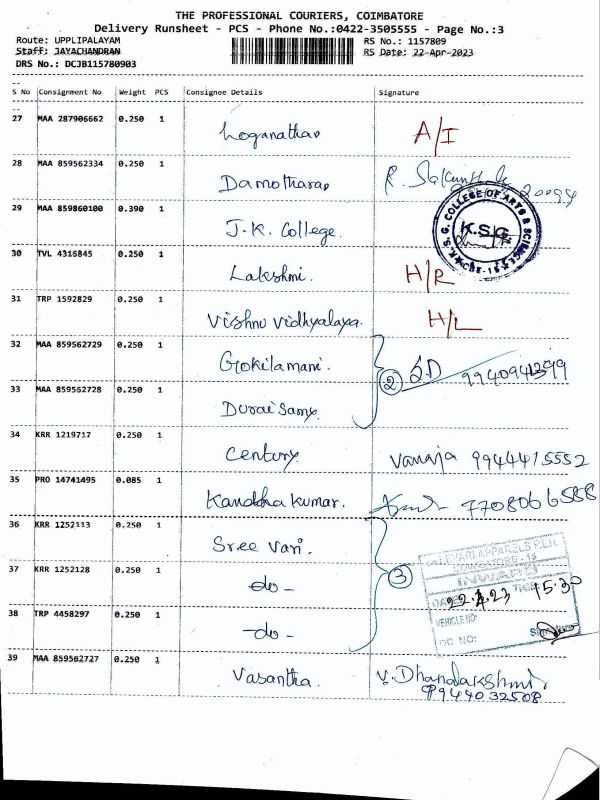 THE PROFESSIONAL COURIERS, COIMBATORE
Delivery Runsheet - PCS - Phone No.:0422-3505555 - Page No.:3
Route: UPPLIPALAYAM RS No.: 1157809
Staff: JAYACHANDRAN RS Date: 22-Apr-2023
DRS No.: DCJB115780903
S No Consignment No Weight PCS Consignee Details Signature
27 MAA 287906662 0.250 1 Loganathan A/I
28 MAA 859562334 0.250 1 Damotharan R.
29 MAA 859860100 0.390 1 J.K. College. K.S.G. COLLEGE OF ARTS & SCIENCE K.S.G CBE-15
30 TVL 4316845 0.250 1 Lakshmi. H/R
31 TRP 1592829 0.250 1 Vishnu Vidhyalaya. H/L
32 MAA 859562729 0.250 1 Gokilamani. ② S.D
33 MAA 859562728 0.250 1 Duraisamy.
34 KRR 1219717 0.250 1 Century. Vanaja 9944415552
35 PRO 14741495 0.085 1 Kanddha kumar. 7708066588
36 KRR 1252113 0.250 1 Sree Vari. ③ APPARELS
37 KRR 1252128 0.250 1 -do- INWARD
38 TRP 4458297 0.250 1 -do- 15.30
VEHICLE NO:
DC NO:
39 MAA 859562727 0.250 1 Vasantha. V. Dhandalakshmi
9944032508